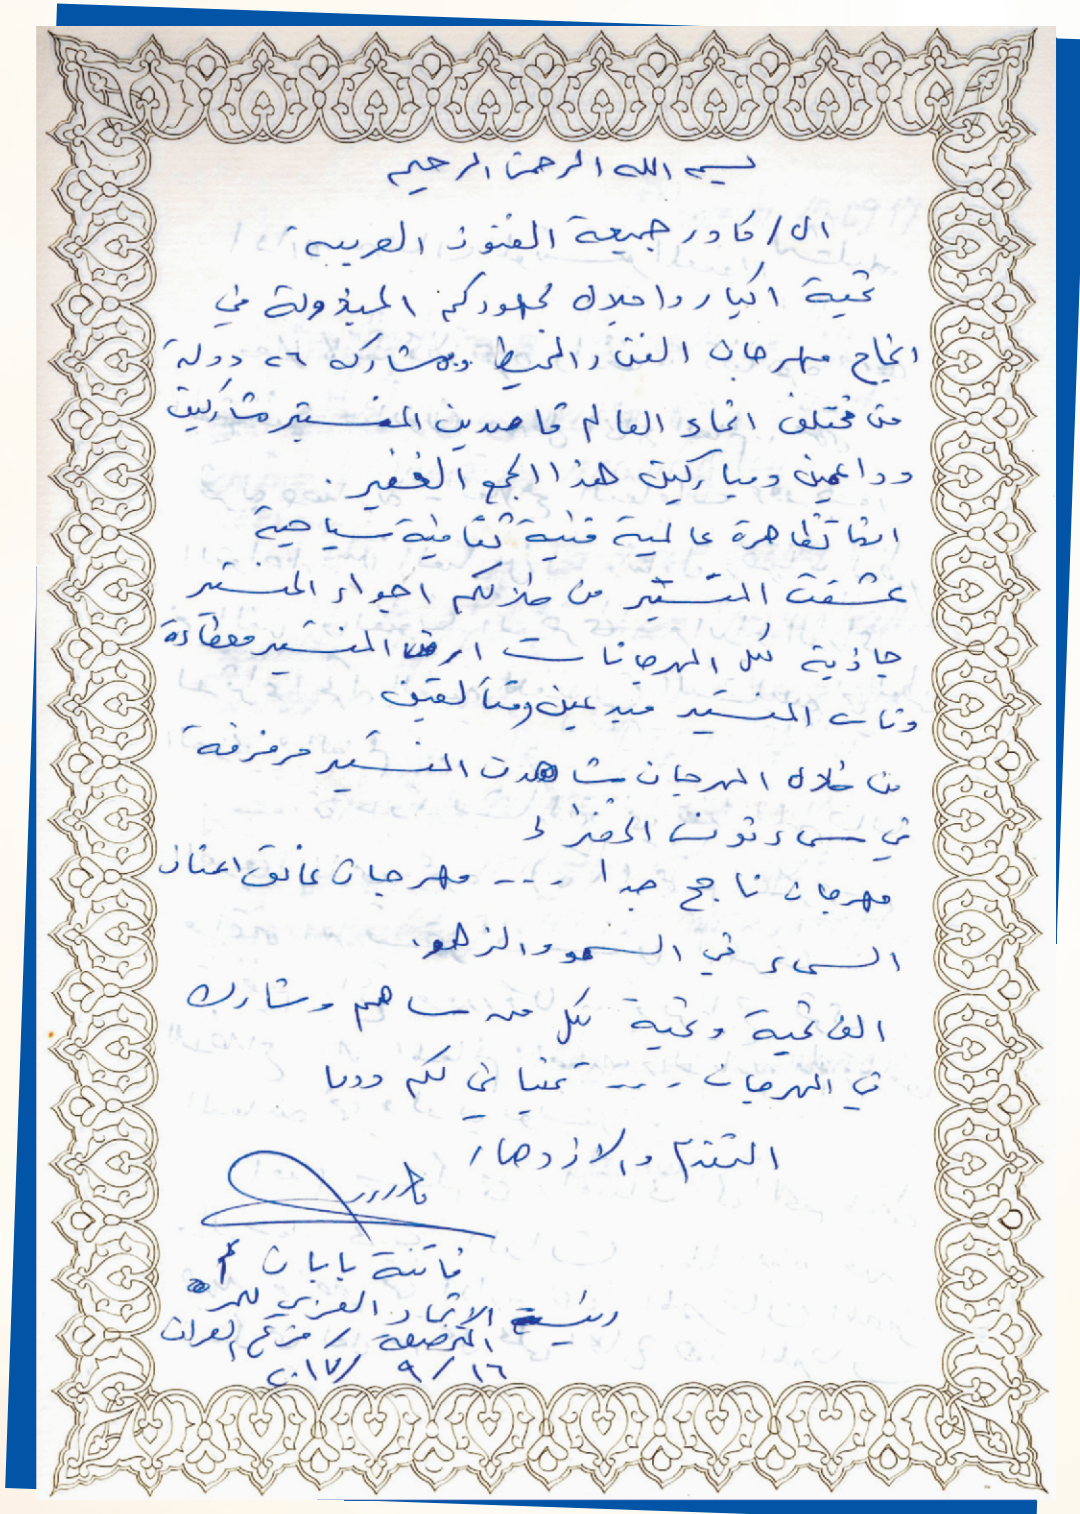 بسم الله الرحمن الرحيم
الى / كادر جمعية الفنون العربية
تحية اكبار واجلال لجهودكم المبذولة في
انجاح مهرجان الفن والمحيط وبمشاركة ٢٦ دولة
من مختلف انحاء العالم قاصدين المنستير مشاركين
وداعمين ومباركين هذا الجمع الغفير .
انها تظاهرة عالمية فنية ثقافية سياحية
عشقت المنستير من خلالكم اجواء المنستير
جاذبة لكل المهرجانات ارض المنستير معطاءة
وناس المنستير مبدعين ومتألقين
من خلال المهرجان شاهدت المنستير مرفرفة
في سماء تونس الخضراء
مهرجان ناجح جدا ... مهرجان عانق اعنان
السماء في السمو والزهو.
الف تحية وتحية لكل من ساهم وشارك
في المهرجان ... تمنياتي لكم دوما
التقدم والازدهار
فاتنة بابان
رئيسة الاتحاد العربي للمرأة
المتخصصة / فرع العراق
١٦ / ٩ / ٢٠١٧